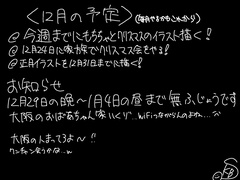 ＜12月の予定＞(毎月やるかもしれぬ…)
@今週までにもちゃとクリスマスのイラスト描く!
@12月24日に家族でクリスマス会をやる!
@正月イラストを12月31日までに描く!
お知らせ
12月29日の晩～1月4日の昼まで無ふじょうです
大阪のおばあちゃん家いくり…WiFiつながらんのよね…
大阪の人まってるよ～!!
ワンチャン会うかな…w